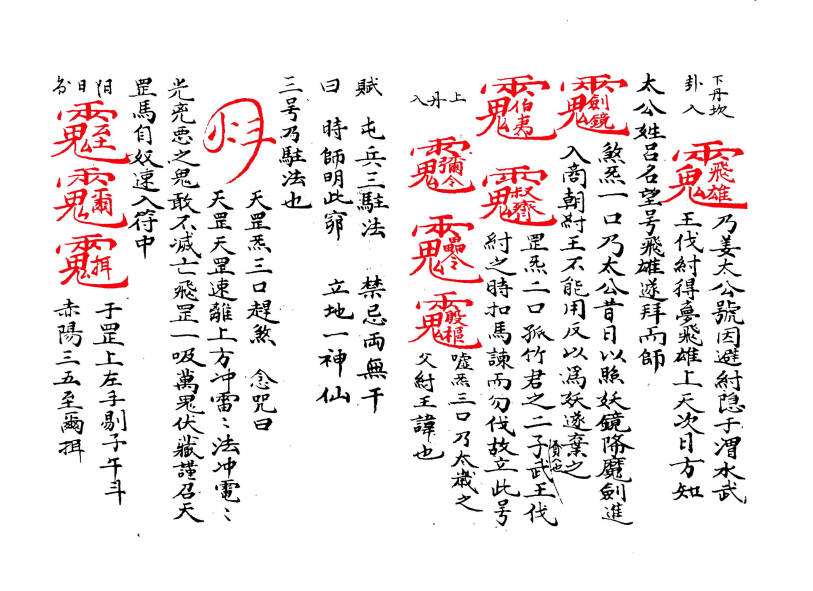 下丹坎
卦入
飛雄
乃姜太公號因避紂隱于渭水武
王伐紂得夢飛雄上天次日方知
太公姓呂名望号飛雄遂拜而師
劍鏡
煞炁一口乃太公昔日以照妖鏡降魔劍進
入商朝紂王不能用反以為妖遂棄之
伯夷
叔齊
罡炁二口孤竹君之二子武王伐
紂之時扣馬諫而勿伐故立此号
上丹入
彌令
壘令
殷樞
噓炁三口乃太歲之
父紂王諱也
賦 屯兵三駐法 禁忌両無干
曰 時師明此窮 立地一神仙
三号乃駐法也
天罡炁三口趕煞 念咒曰
天罡天罡速離上方冲雷〻法冲電〻
光充悪之鬼敢不滅亡飛罡一吸萬鬼伏藏謹召天
罡馬自奴速入符中
至
爾
揖
于罡上左手剔子午斗
赤陽三五至爾揖